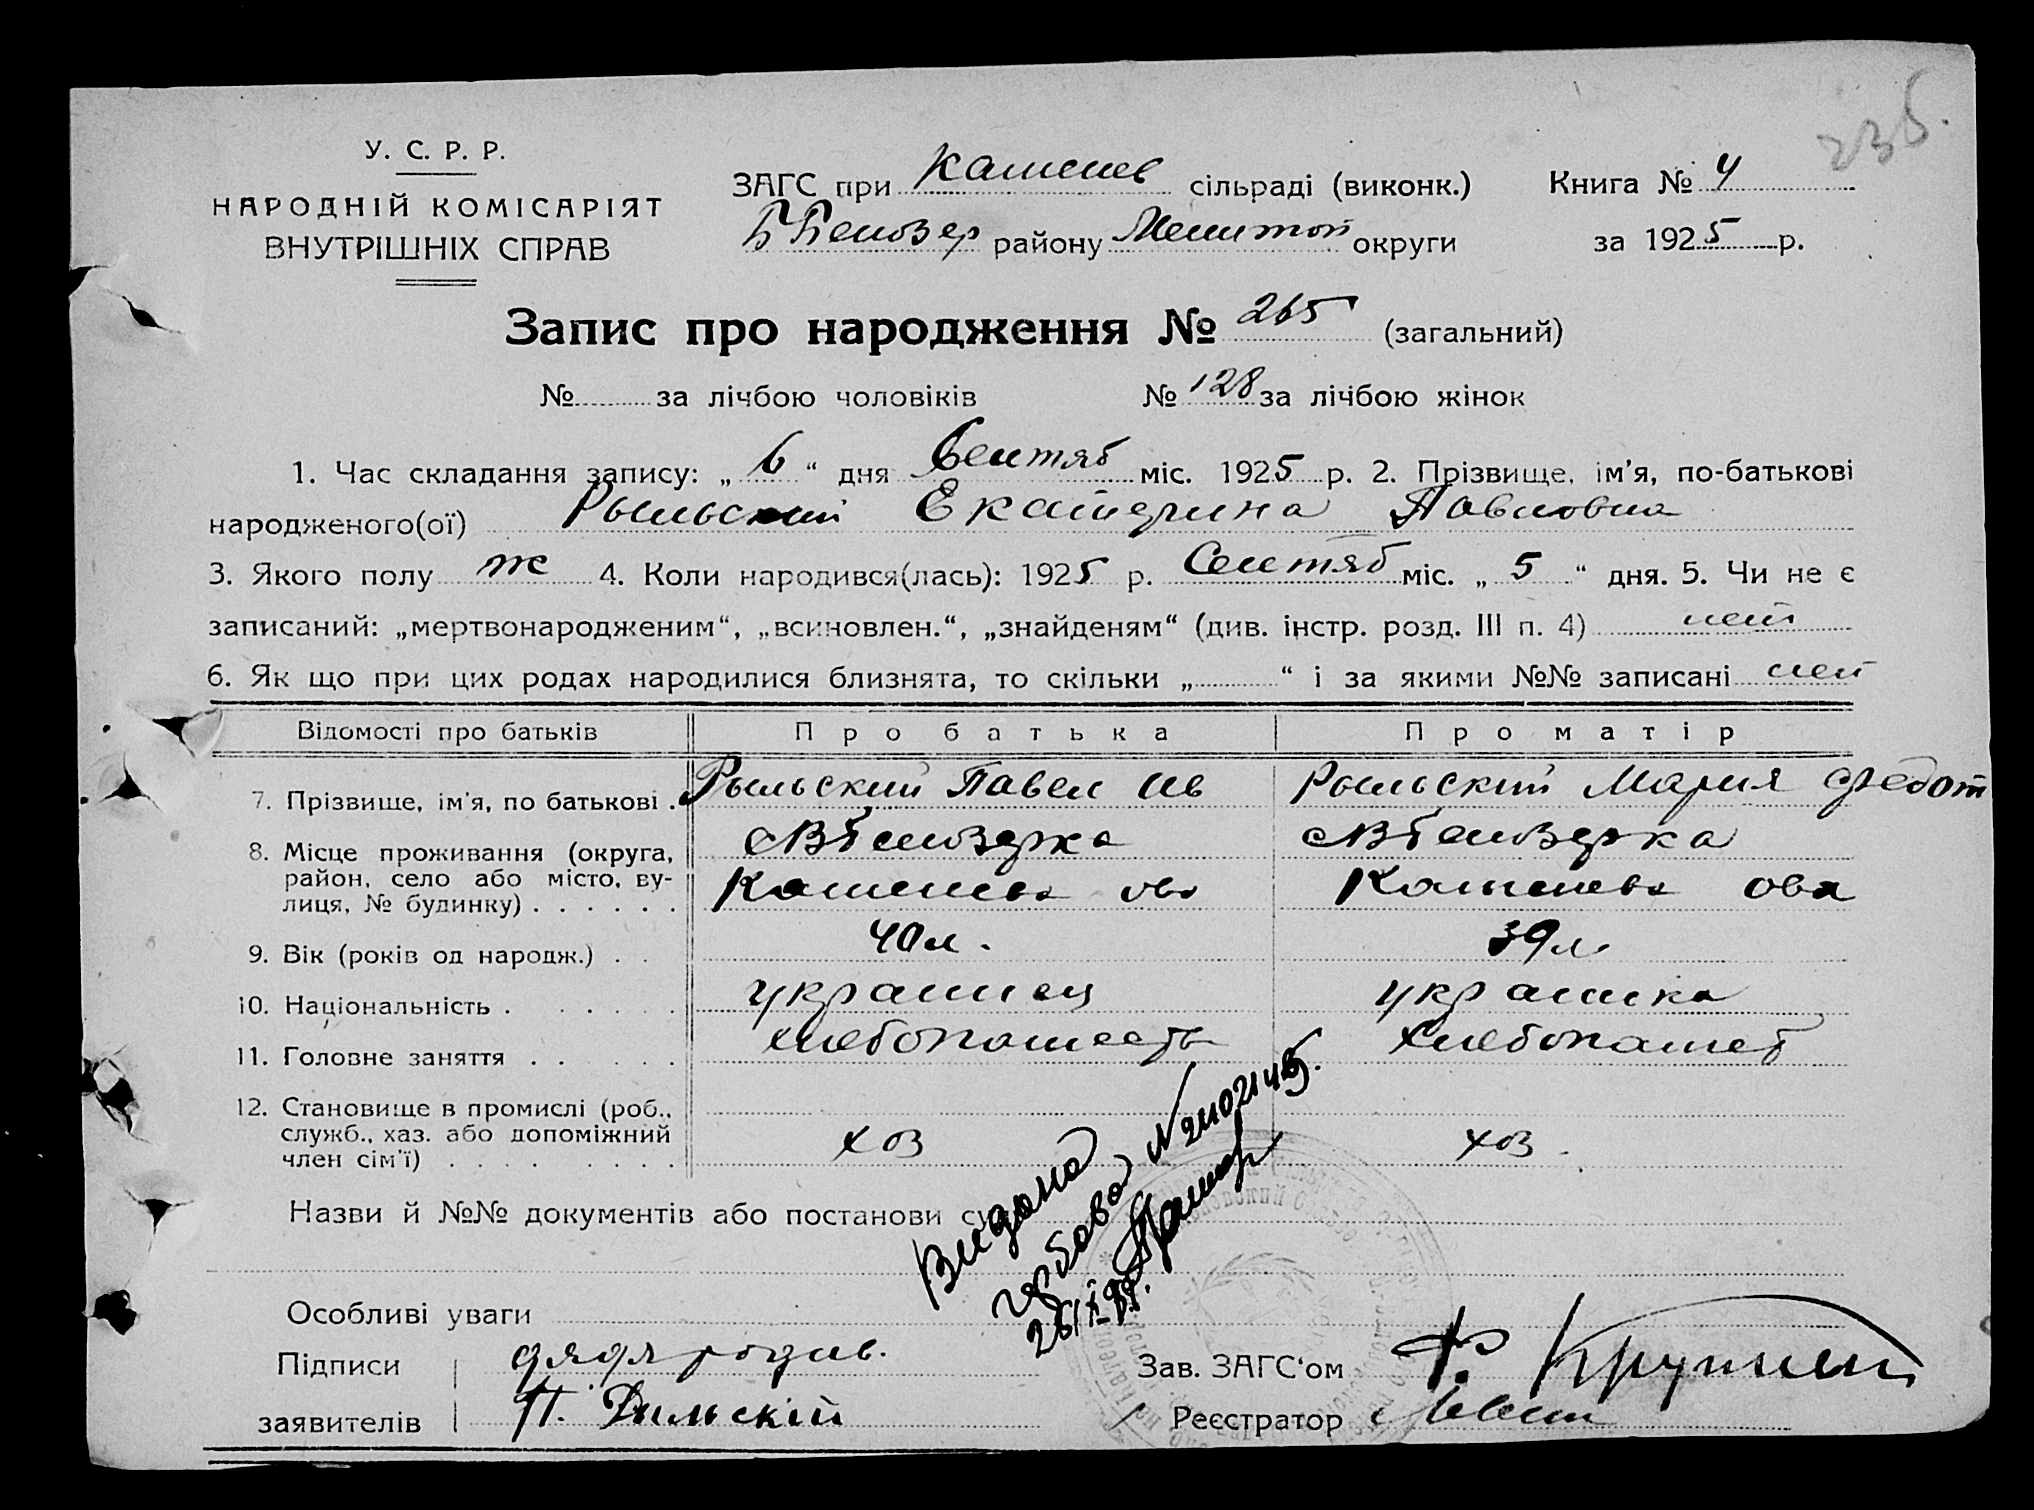 235.
У. С. Р. Р.
НАРОДНІЙ КОМІСАРІЯТ
ВНУТРІШНІХ СПРАВ
ЗАГС при Каменев сільраді (виконк.) Книга № 4
Б Белозер району Мелитоп округи за 1925 р.
Запис про народження № 265 (загальний)
№ за лічбою чоловіків № 128 за лічбою жінок
1. Час складання запису: „ 6 “ дня Сентяб міс. 1925 р. 2. Прізвище, ім’я, по-батькові
народженого(ої) Рыльский Екатерина Павловна
3. Якого полу ж 4. Коли народився(лась): 1925 р. Сентяб міс. „ 5 “ дня. 5. Чи не є
записаний: „мертвонародженим“, „всиновлен.“, „знайденям“ (див. інстр. розд. III п. 4) нет
6. Як що при цих родах народилися близнята, то скільки „ “ і за якими №№ записані нет
Відомості про батьків Про батька Про матір
7. Прізвище, ім’я, по батькові . Рыльский Павел Ив Рыльский Мария Федот
8. Місце проживання (округа, район, село або місто, вулиця, № будинку) . . . . . .
9. Вік (років од народж.) . . 40 л. 39 л.
10. Національність . . . . . . украинец украинка
11. Головне заняття . . . . хлебопашест хлебопашеб
12. Становище в промислі (роб.,
служб., хаз. або допоміжний
член сім’ї) . . . . . . . хоз хоз.
Назви й №№ документів або постанови
Видана
Особливі уваги
Підписи
заявителів П. Рыльскій
Зав. ЗАГС‘ом
Реєстратор